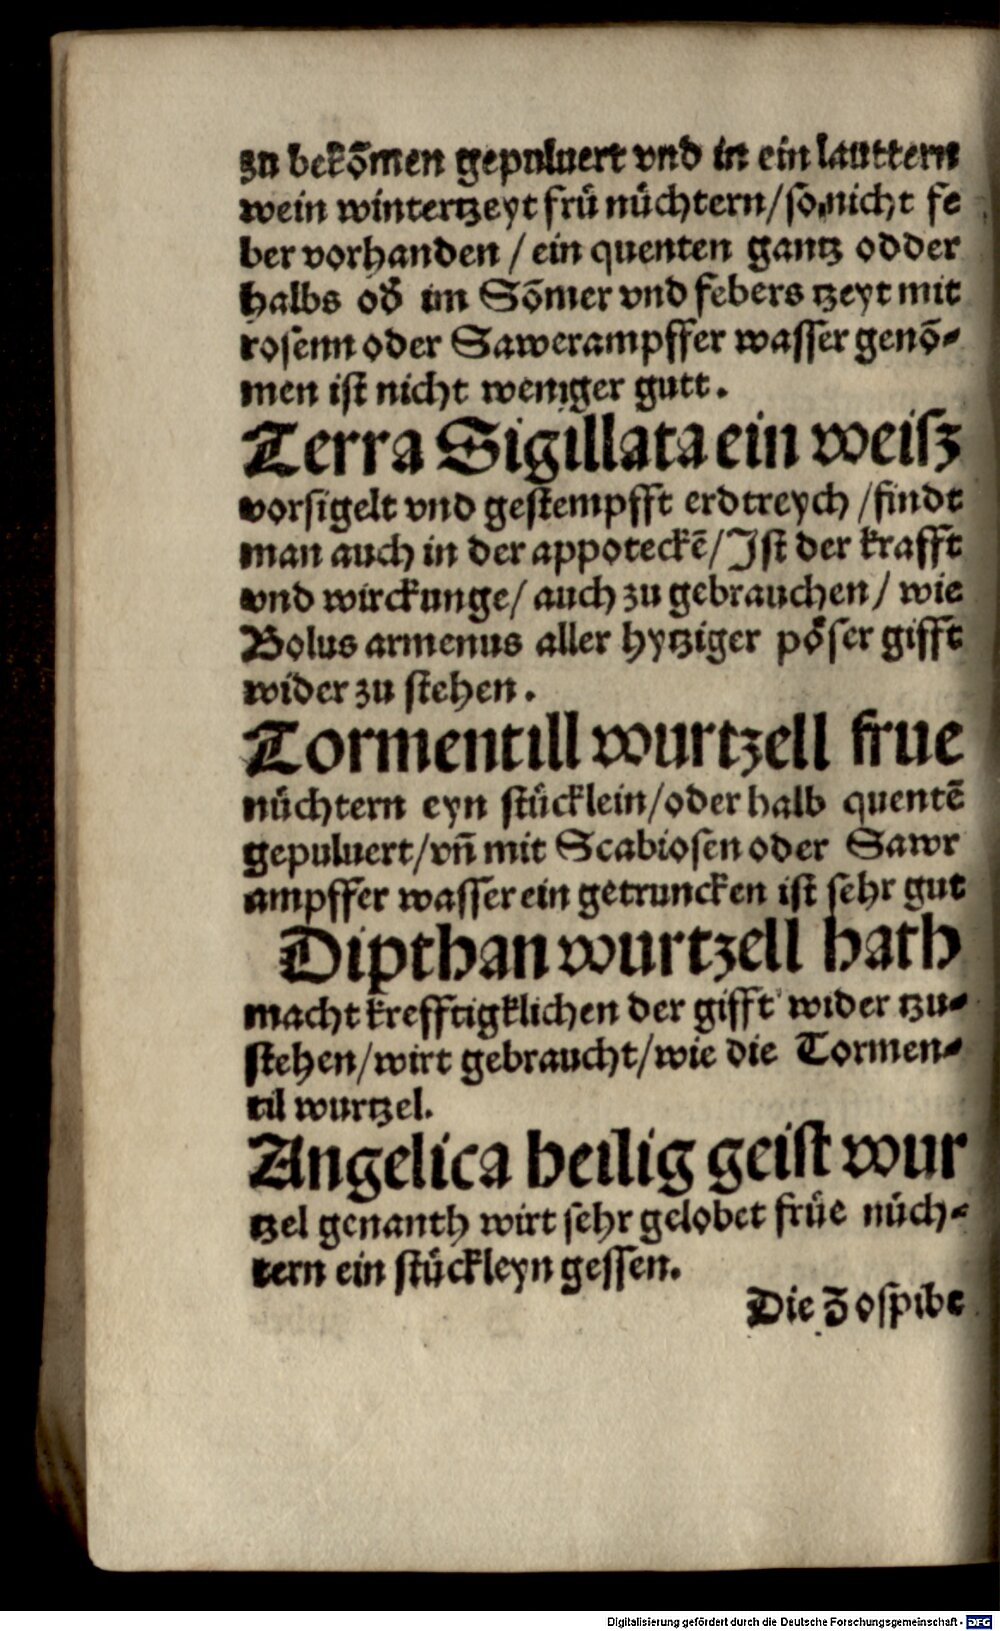 zu bekõmen gepuluert vnd in ein lauttern
wein wintertzeyt frü nüchtern/so nicht fe
ber vorhanden / ein quenten gantz odder
halbs od̓ im Sõmer vnd febers tzeyt mit
rosenn oder Sawerampffer wasser genõ-
men ist nicht weniger gutt.
Terra Sigillata ein weisz
vorsigelt vnd gestempfft erdtreych /findt
man auch in der appoteckẽ/Ist der krafft
vnd wirckunge/ auch zu gebrauchen/ wie
Bolus armenus aller hytziger pöser gifft
wider zu stehen.
Tormentill wurtzell frue
nüchtern eyn stücklein/oder halb quentẽ
gepuluert/vñ mit Scabiosen oder Sawr
ampffer wasser ein getruncken ist sehr gut
Dipthan wurtzell hath
macht krefftigklichen der gifft wider tzu-
stehen/wirt gebraucht/wie die Tormen-
til wurtzel.
Angelica heilig geist wur
tzel genanth wirt sehr gelobet früe nüch-
tern ein stückleyn gessen.
Die Zospibe
Digitalisierung gefördert durch die Deutsche Forschungsgemeinschaft - DFG